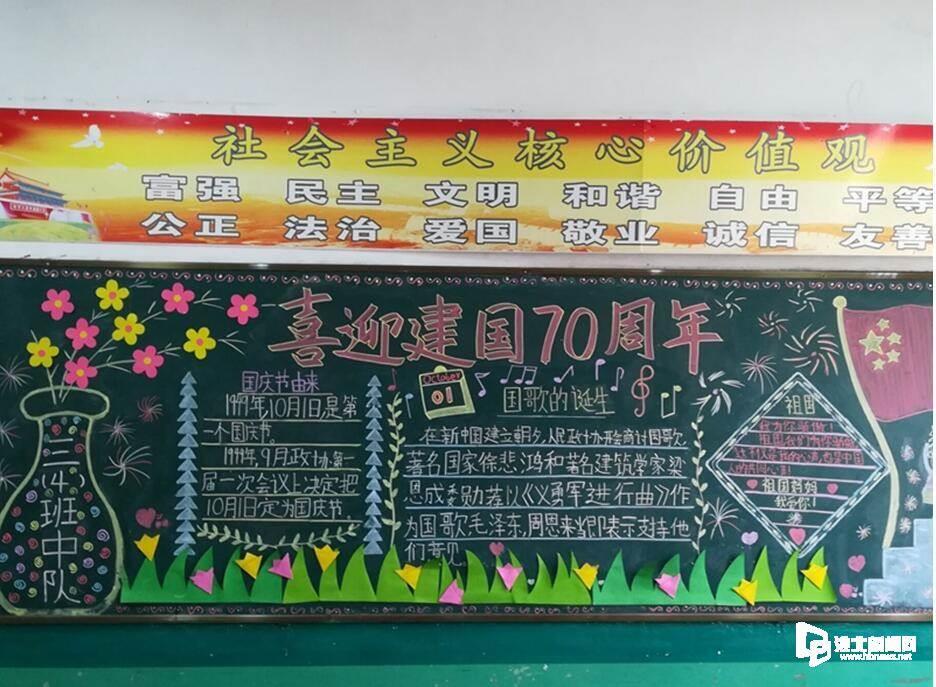 社会主义核心价值观
富强 民主 文明 和谐 自由 平等
公正 法治 爱国 敬业 诚信 友善
喜迎建国70周年
国庆节由来
1999年10月1日是第
一个国庆节。
1949年,9月政协第一
届一次会议上决定把
10月1日定为国庆节
October
01
国歌的诞生
在新中国建立朝夕,人民政协开始商讨国歌
著名国家徐悲鸿和著名建筑学家梁
思成委勋荐以《义勇军进行曲》作
为国歌毛泽东,周恩来
表示支持他
们意见。
祖国
我为你骄傲!
祖国妈妈
我爱你!
三(4)班中队
www.hbnews.net